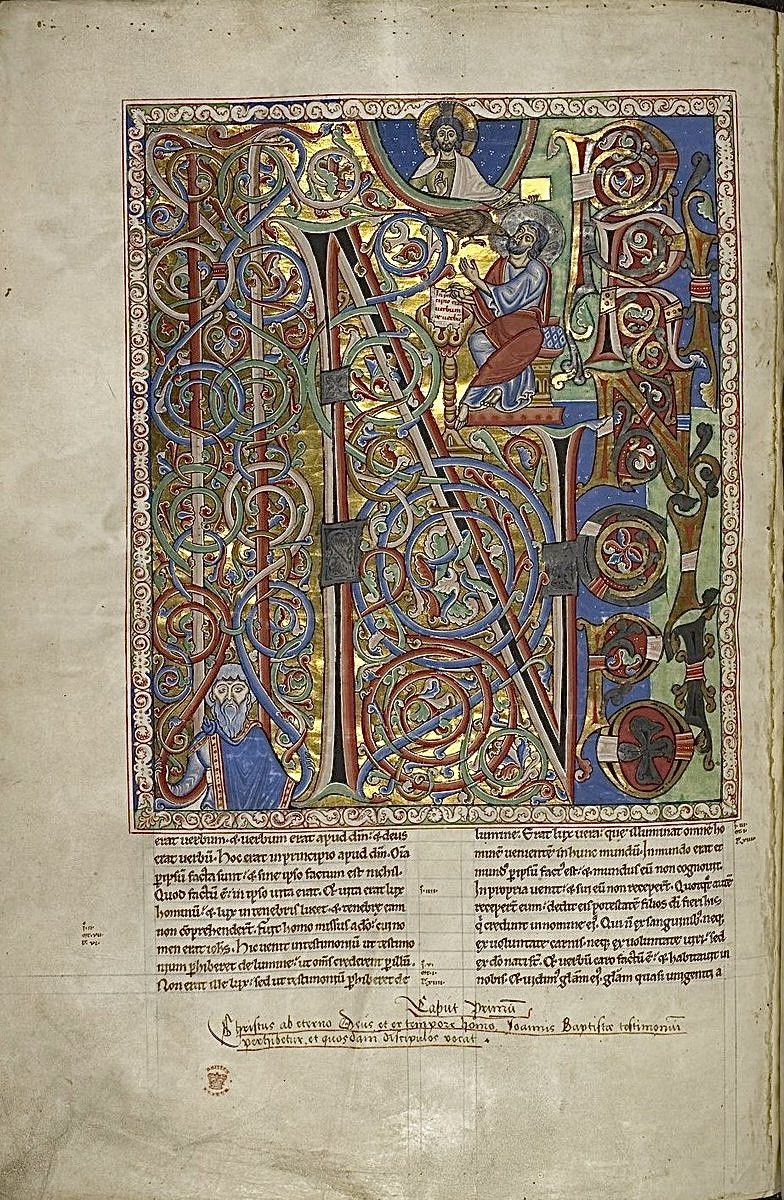 IN PRINCIPIO
uerbum
erat uerbum. & uerbum erat apud dm̄. & deus
erat uerbū. Hoc erat in principio apud dm̄. Om̄a
ꝑ ipsū facta sunt. & sine ipso factum est nichil.
Quod factū ē. in ipso uita erat. Et uita erat lux
hominū. & lux in tenebris lucet. & tenebre eam
non cōprehenderūt. Fuit homo missus a do. cui no
men erat iohs. Hic uenit in testimoniū ut testimo
nium ꝑhiberet de lumine. ut om̄s crederent ꝑ illū.
Non erat ille lux. sed ut testimoniū ꝑhiberet de
lumine. Erat lux uera. que illuminat omnē ho
minē uenientē in hunc mundū. In mundo erat &
mund' ꝑ ipsū fact' est. & mundus eū non cognouit.
In propria uenit. & sui eū non receꝑt. Quotqt autē
receperunt eum. dedit eis potestatē filios di fieri his
q̄ credunt in nomine ei'. Qui n̄ ex sanguinib. neq;
ex uoluntate carnis. neq; ex uoluntate uiri. sed
ex do nati st̄. Et uerbū caro factū ē. & habitauit in
nobis. Et uidim' glam ei'. glam quasi unigeniti a
Caput Primū
Christus ab eterno Deus et ex tempore homo, Joannis Baptistæ testimonium
perhibetur, et quosdam discipulos vocat.